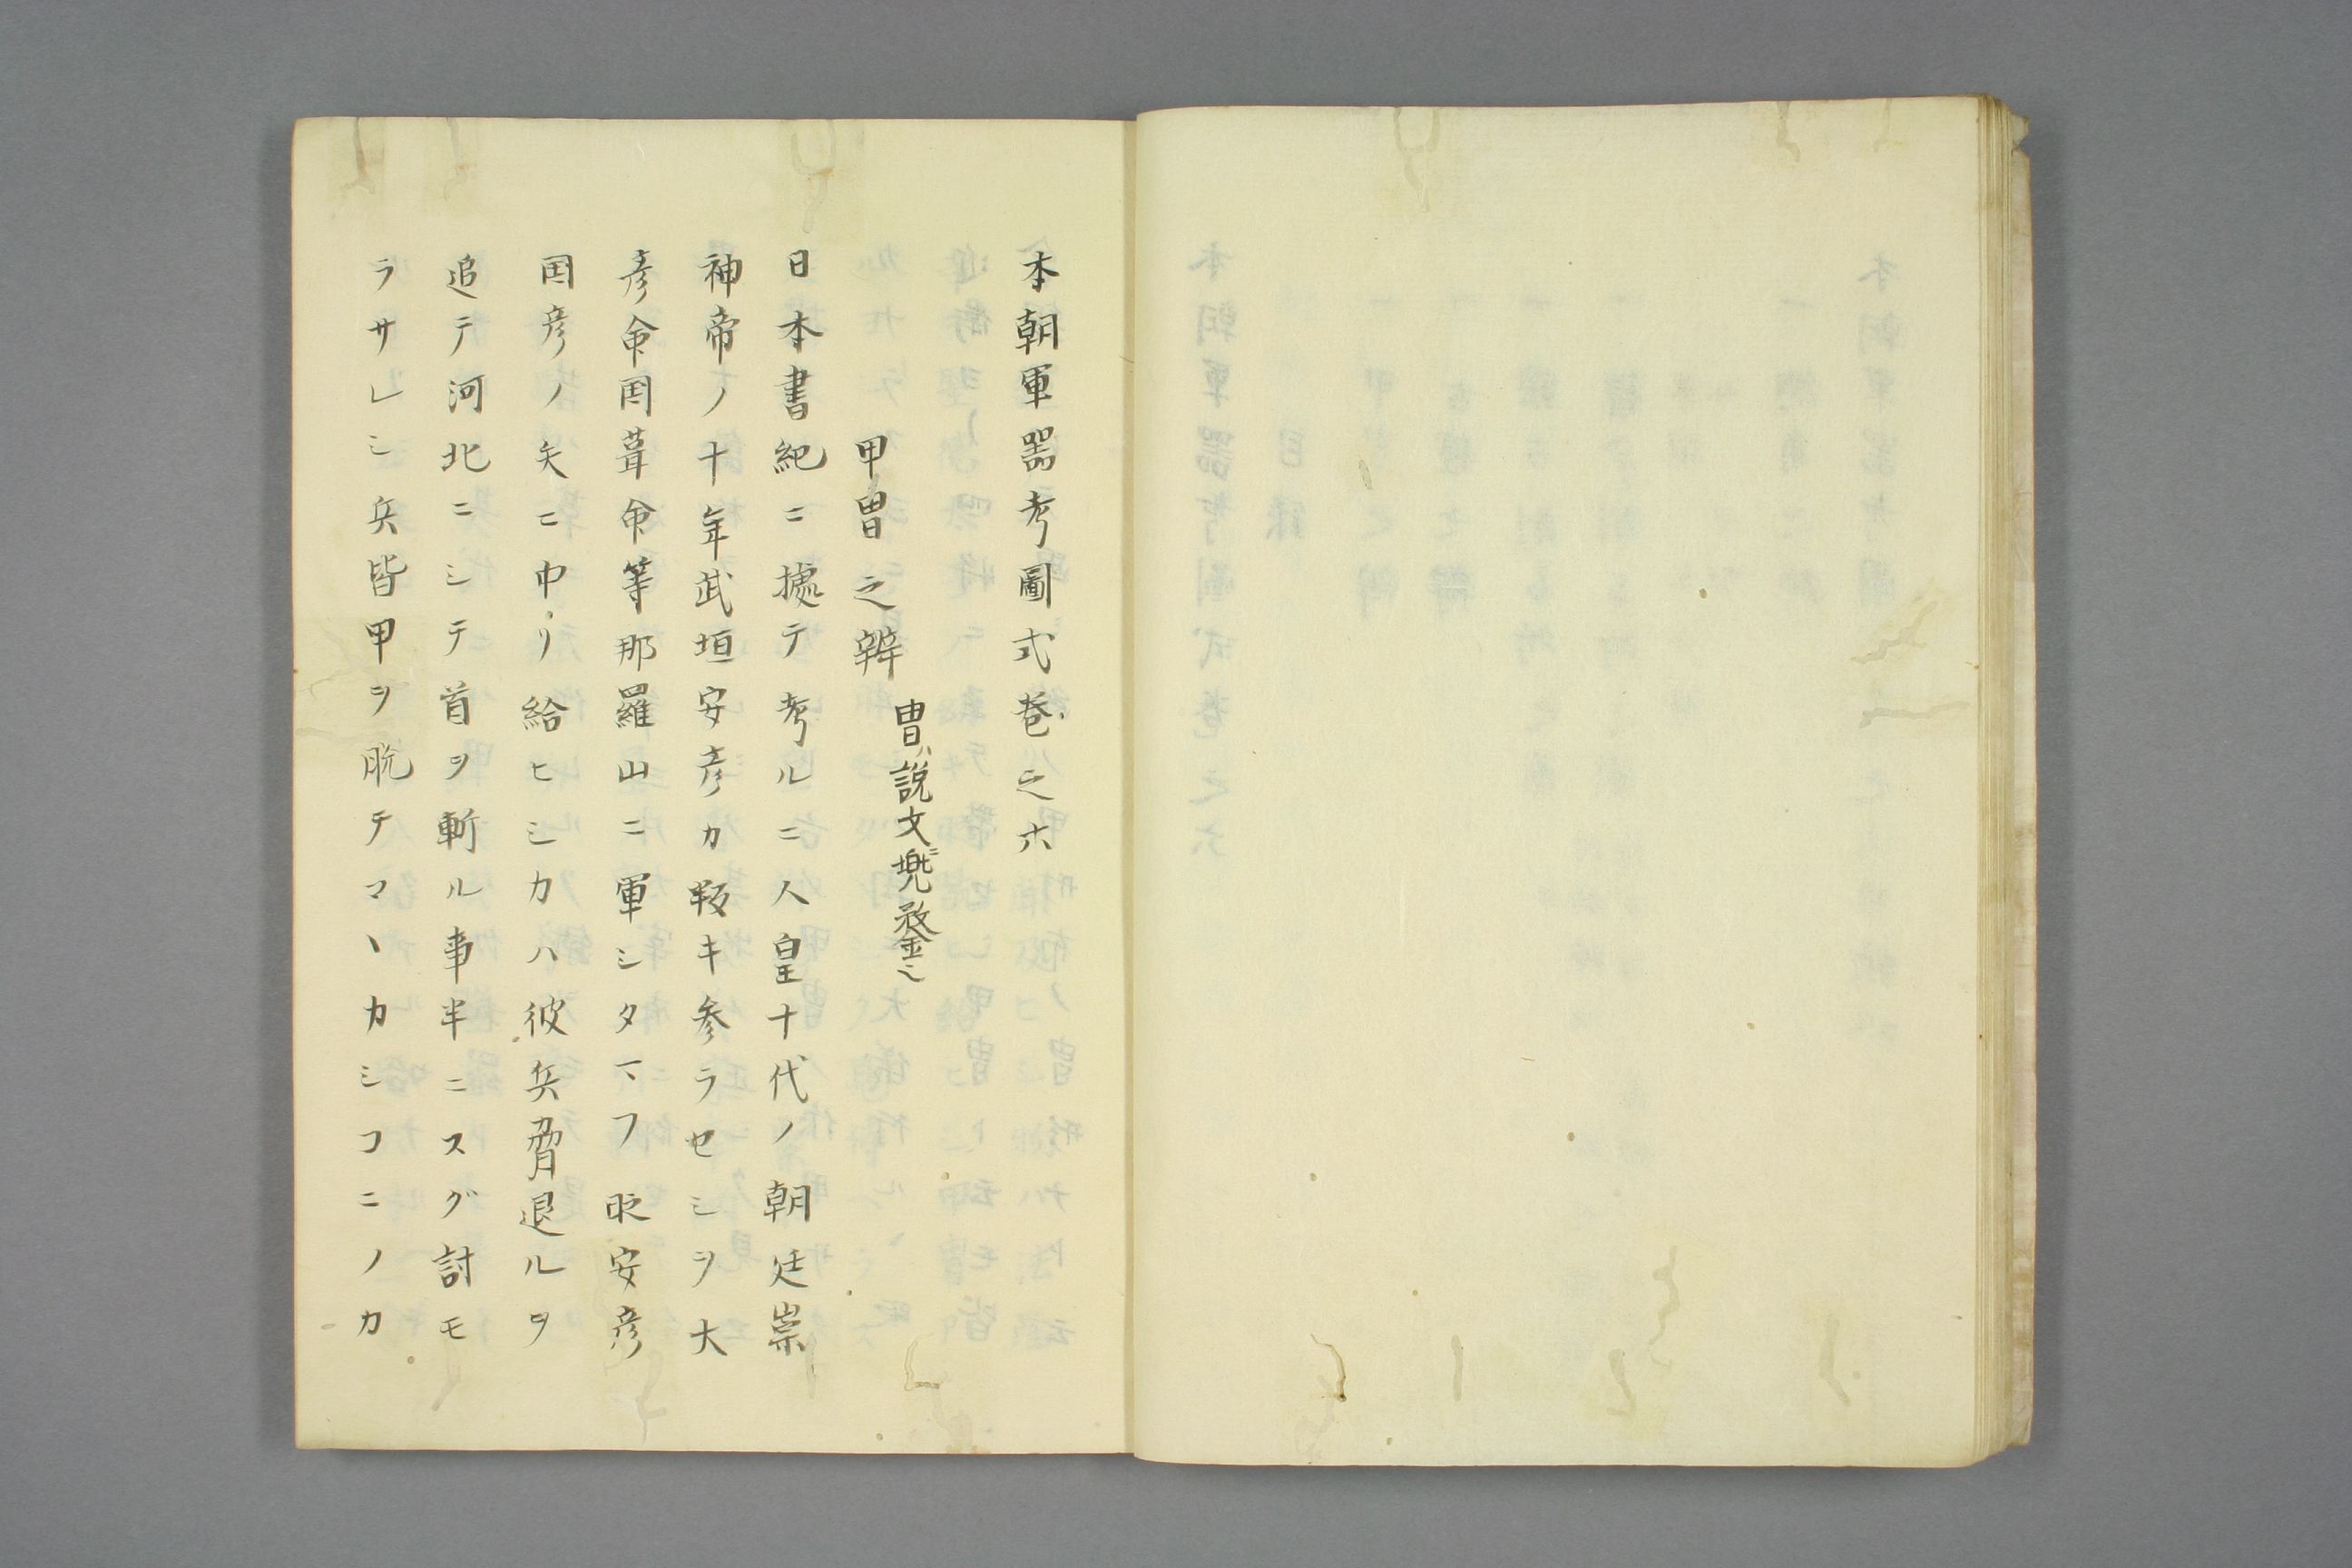 本朝軍器考圖式巻之六
甲冑之辨
冑ハ説文ニ兠鍪也
日本書紀ニ據テ考ルニ人皇十代ノ朝廷崇
神帝ノ十年武垣安彦カ叛キ参ラセシヲ大
彦命国葺命等那羅山ニ軍シタマフ
安彦
国彦ノ矢ニ中リ給ヒシカハ彼兵脅退ルヲ
追テ河北ニシテ首ヲ斬ル事半ニスグ討モ
ラサレシ兵皆甲ヲ脱テマヽカシコニノカ